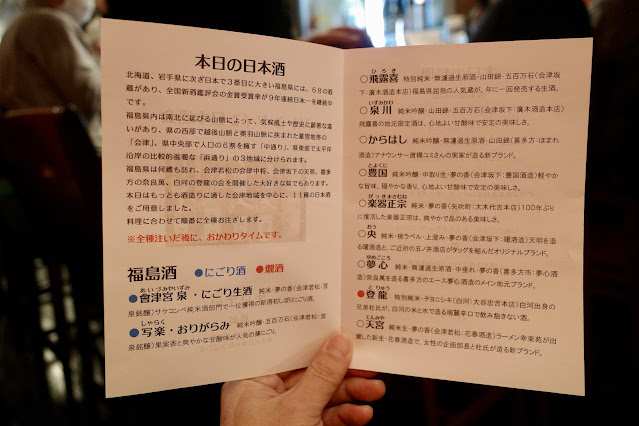 本日の日本酒
北海道、岩手県に次ぎ日本で3番目に大きい福島県には、68の酒
蔵があり、全国新酒鑑評会の金賞受賞率が9年連続日本一を継続中
です。
福島県内は南北に延びる山脈によって、気候風土や歴史に顕著な違
いがあり、県の西部で越後山脈と奥羽山脈に挟まれた豪雪地帯の
「会津」、県中央部で人口の6割を擁す「中通り」、県東部で太平洋
沿岸の比較的温暖な「浜通り」の3地域に分けられます。
福島県には何蔵も訪れ、会津若松の会津中将、会津坂下の天明、喜多
方の奈良萬、白河の登龍の会を開催した大好きな県でもあります。
本日はもっとも酒造りに適した会津地域を中心に、11種の日本酒
をご用意しました。
料理に合わせて順番に全種お注ぎします。
※全種注いだ後に、おかわりタイムです。
福島酒 ●にごり酒 ●燗酒
あいづみやいずみ
●會津宮泉・にごり生酒 純米・夢の香(会津若松:宮
泉銘醸)サケコンペ純米酒部門で一位獲得の新酒初しぼりにごり酒。
しゃらく
●写楽・おりがらみ 純米吟醸・五百万石(会津若松:宮
泉銘醸)果実香と爽やかな甘酸味が人気の薄にごり。
ひろき
○飛露喜 特別純米・無濾過生原酒・山田錦・五百万石(会津坂
下:廣木酒造本店)福島県屈指の人気蔵が、年に一回発売する生酒。
いずみかわ
○泉川 純米吟醸・山田錦・五百万石(会津坂下:廣木酒造本店)
飛露喜の地元限定酒は、心地よい甘酸味で安定の美味しさ。
○からはし 純米吟醸・無濾過生原酒・山田錦(喜多方:ほまれ
酒造)アナウンサー唐橋ユミさんの実家が造る新ブランド。
とよくに
○豊国 純米吟醸・中取り生・夢の香(会津坂下:豊國酒造)軽やか
な旨味、穏やかな香り、心地よい甘酸味で安定の美味しさ。
がっきまさむね
○楽器正宗 純米・夢の香(矢吹町:大木代吉本店)100年ぶり
に復活した楽器正宗は、爽やかで品のある美味しさ。
おう
○央 純米・桃ラベル・上澄み・夢の香(会津坂下:曙酒造)天明を造
る曙酒造と、ご近所の五ノ井酒店がタッグを組んだオリジナルブランド。
ゆめごころ
○夢心 純米・無濾過生原酒・中垂れ・夢の香(喜多方市:夢心酒
造)奈良萬を造る喜多方のエース夢心酒造のメイン地元ブランド。
とりゅう
●登龍 特別純米・チヨニシキ(白河:大谷忠吉本店)白河出身の
兄弟杜氏が、白河の米と水で造る端麗辛口で飲み飽きない酒。
てんみや
○天宮 純米生・夢の香(会津若松:花春酒造)ラーメン幸楽苑が出
資した新生・花春酒造で、女性の企画部長と杜氏が造る新ブランド。